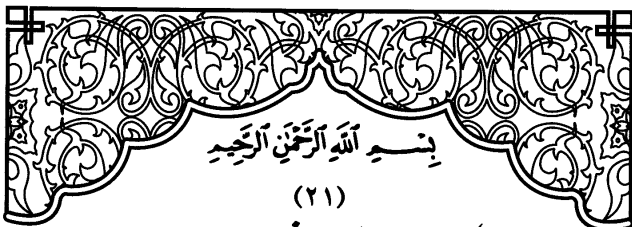 بِسْمِ ٱللَّهِ ٱلرَّحْمَٰنِ ٱلرَّحِيمِ
(٢١)